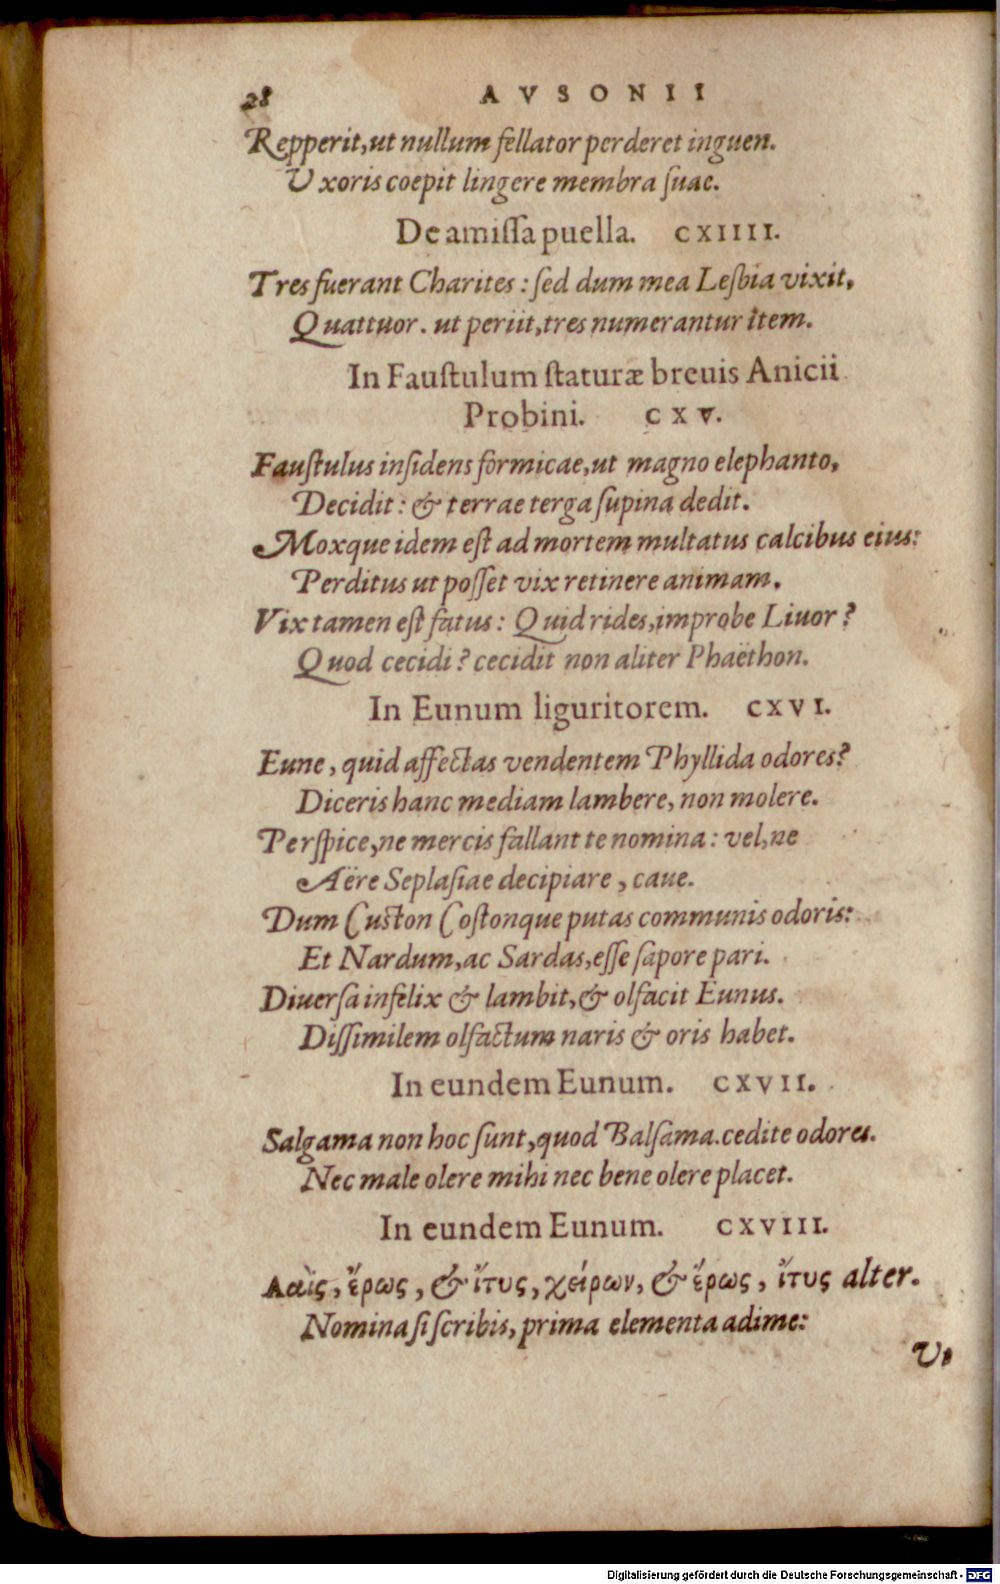 28 AVSONII
Repperit, ut nullum fellator perderet inguen.
Vxoris coepit lingere membra suae.
De amissa puella. CXIIII.
Tres fuerant Charites: sed dum mea Lesbia vixit,
Quattuor. ut periit, tres numerantur item.
In Faustulum staturæ brevis Anicii
Probini. CXV.
Faustulus insidens formicae, ut magno elephanto,
Decidit: & terrae terga supina dedit.
Moxque idem est ad mortem multatus calcibus eius:
Perditus ut posset vix retinere animam.
Vix tamen est fatus: Quid rides, improbe Livor?
Quod cecidi? cecidit non aliter Phaëthon.
In Eunum liguritorem. CXVI.
Eune, quid affectas vendentem Phyllida odores?
Diceris hanc mediam lambere, non molere.
Perspice, ne mercis fallant te nomina: vel, ne
Aëre Seplasiae decipiare, cave.
Dum Custon Costonque putas communis odoris:
Et Nardum, ac Sardas, esse sapore pari.
Diversa infelix & lambit, & olfacit Eunus.
Dissimilem olfactum naris & oris habet.
In eundem Eunum. CXVII.
Salgama non hoc sunt, quod Balsama. cedite odores.
Nec male olere mihi nec bene olere placet.
In eundem Eunum. CXVIII.
Λαὶς, ἔρως, & ἴτυς, χείρων, & ἔρως, ἴτυς alter.
Nomina si scribis, prima elementa adime:
Vt
Digitalisierung gefördert durch die Deutsche Forschungsgemeinschaft - DFG